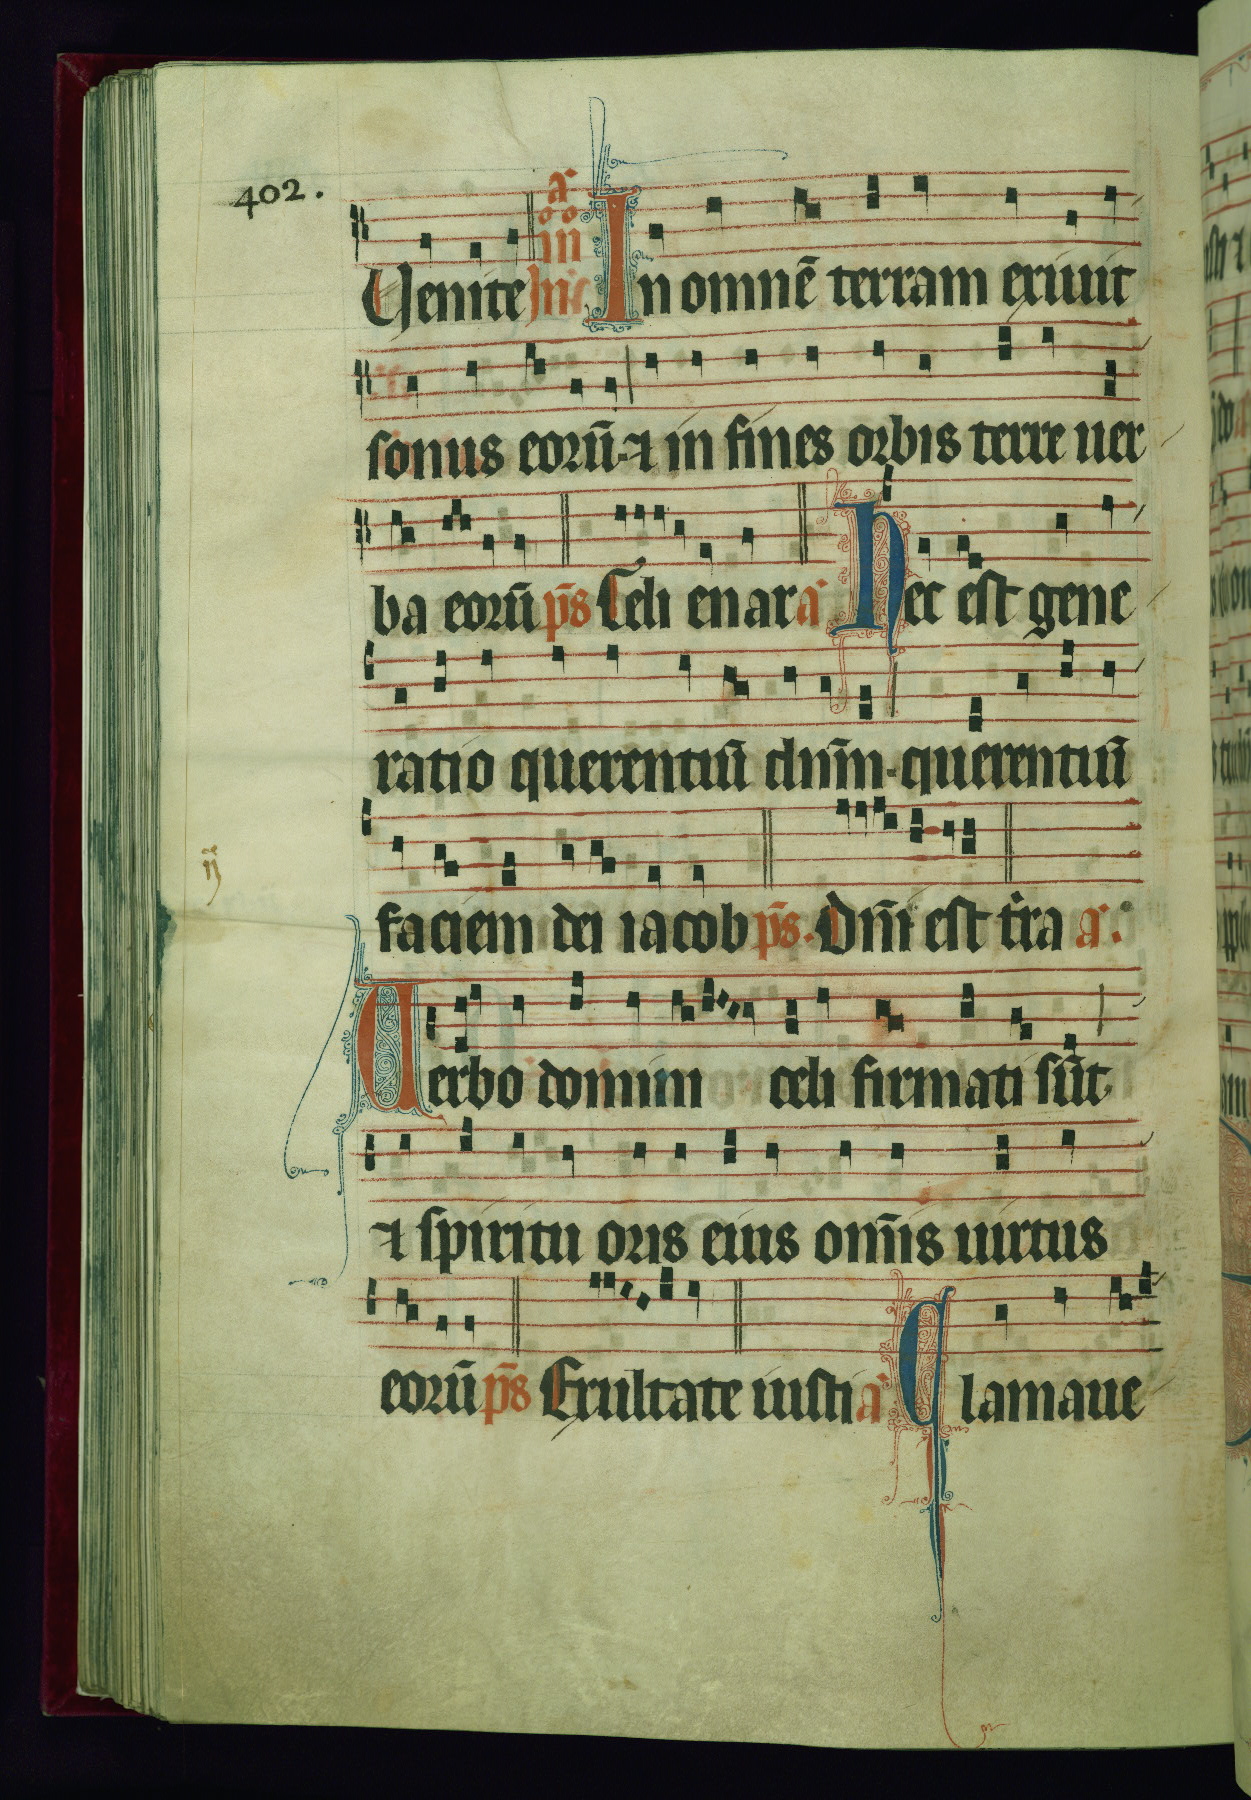 402.
Uenite In omnē terram exiuit
sonus eorū. ⁊ in fines orbis terre uer
ba eorū ps̄ Celi enar a Hec est gene
ratio querentiū dn̄m. querentiū
faciem dei iacob ps̄. Dn̄i est tr̄a a.
ij
Uerbo domini celi firmati sūt
⁊ spiritu oris eius om̄is uirtus
eorū ps̄ Exultate iusti a Clamaue